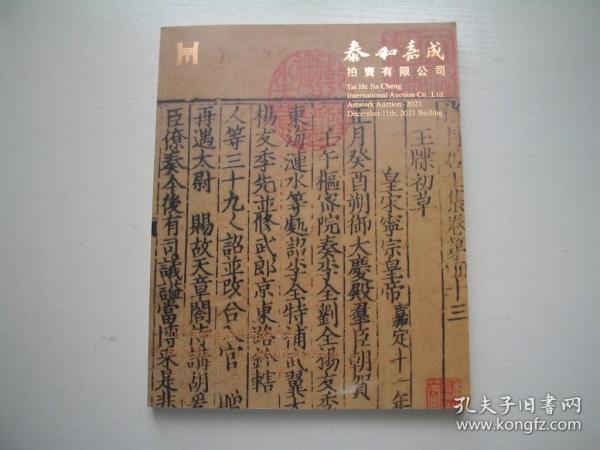 泰和嘉成
拍賣有限公司
Tai He Jia Cheng
International Auction Co.,Ltd
Artwork Auction · 2021
December.11th, 2021 BeiJing
卷第四十三
玉牒初草
皇宋寧宗皇帝 嘉定十一年
正月癸酉朔御大慶殿羣臣朝賀
壬午樞密院奏李全劉全楊友季
東海漣水等處詔李全特補武翼大
楊友季先並修武郎京東路鈐轄
人等三十九人詔並改合入官 贈
再遇太尉 賜故天章閣待講胡瑗
臣僚奏今後有司議謚當博采是非
孔夫子旧书网
www.kongfz.com